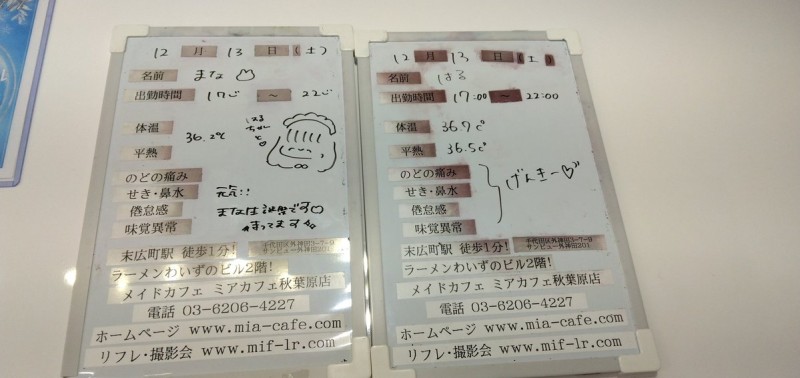 12 月 13 日 (土)
名前 まな
出勤時間 17:00 ~ 22:00
体温 36.2℃
平熱
はる
ちゃん
と。
のどの痛み
せき・鼻水 元気!!
倦怠感 まなは誕祭です♡
味覚異常 待ってます
末広町駅 徒歩1分! 千代田区外神田3-7-9
サンビュー外神田201
ラーメンわいずのビル2階!
メイドカフェ ミアカフェ秋葉原店
電話 03-6206-4227
ホームページ www.mia-cafe.com
リフレ・撮影会 www.mif-lr.com
12 月 13 日 (土)
名前 はる
出勤時間 17:00 ~ 22:00
体温 36.7℃
平熱 36.5℃
のどの痛み
せき・鼻水 げんきー♡
倦怠感
味覚異常
末広町駅 徒歩1分! 千代田区外神田3-7-9
サンビュー外神田201
ラーメンわいずのビル2階!
メイドカフェ ミアカフェ秋葉原店
電話 03-6206-4227
ホームページ www.mia-cafe.com
リフレ・撮影会 www.mif-lr.com